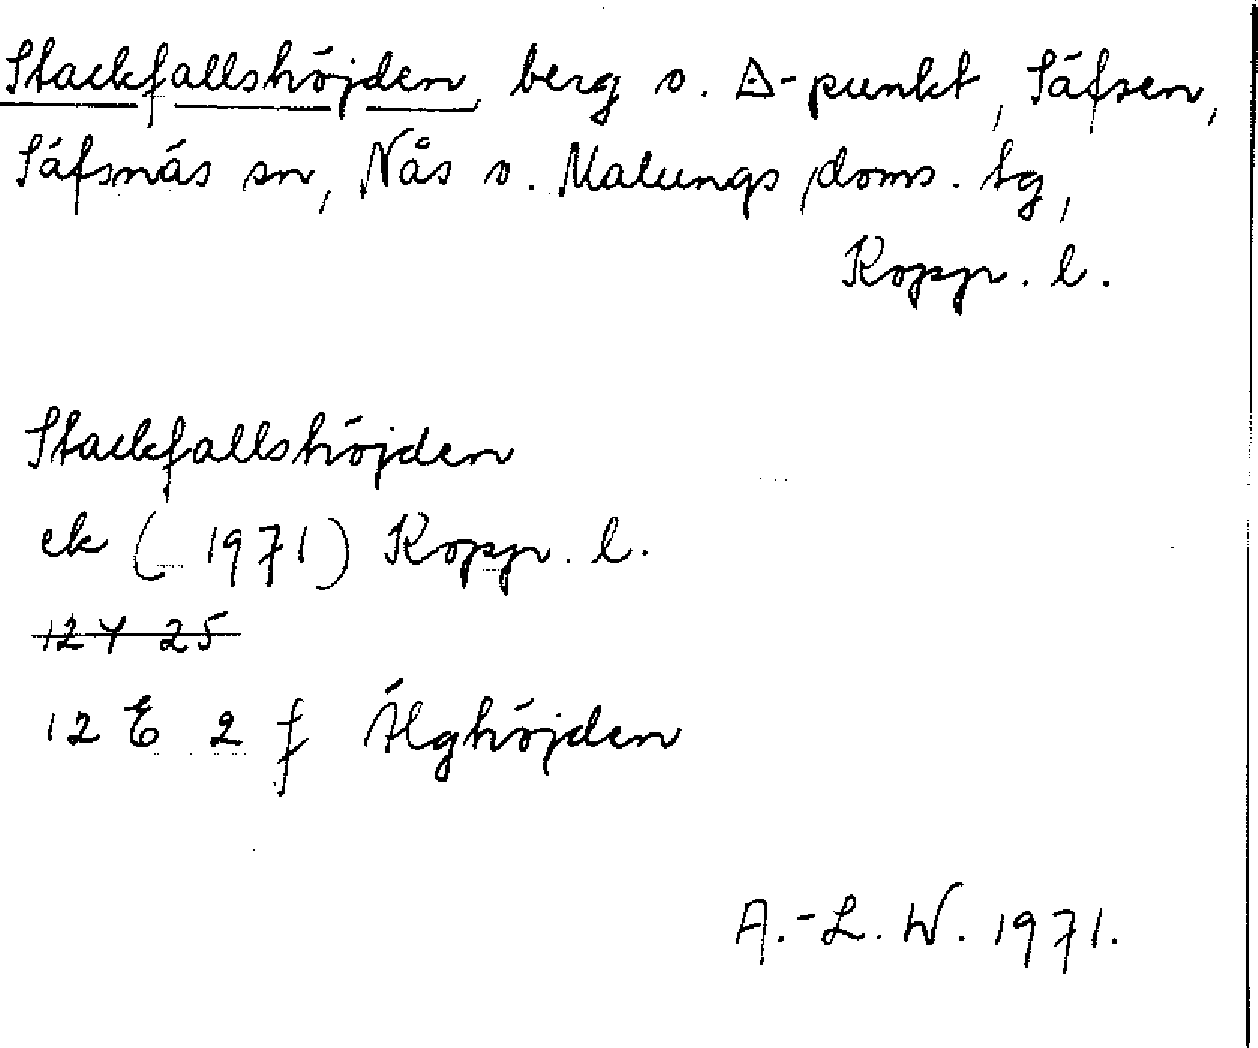 Stackfallshöjden, berg o. △-punkt, Säfsen,
Säfsnäs sn, Nås o. Malungs doms. tg,
Kopp. l.
Stackfallshöjden
ek ( 1971) Kopp. l.
12Y 25
12 E 2 f Älghöjden
A.-L. W. 1971.